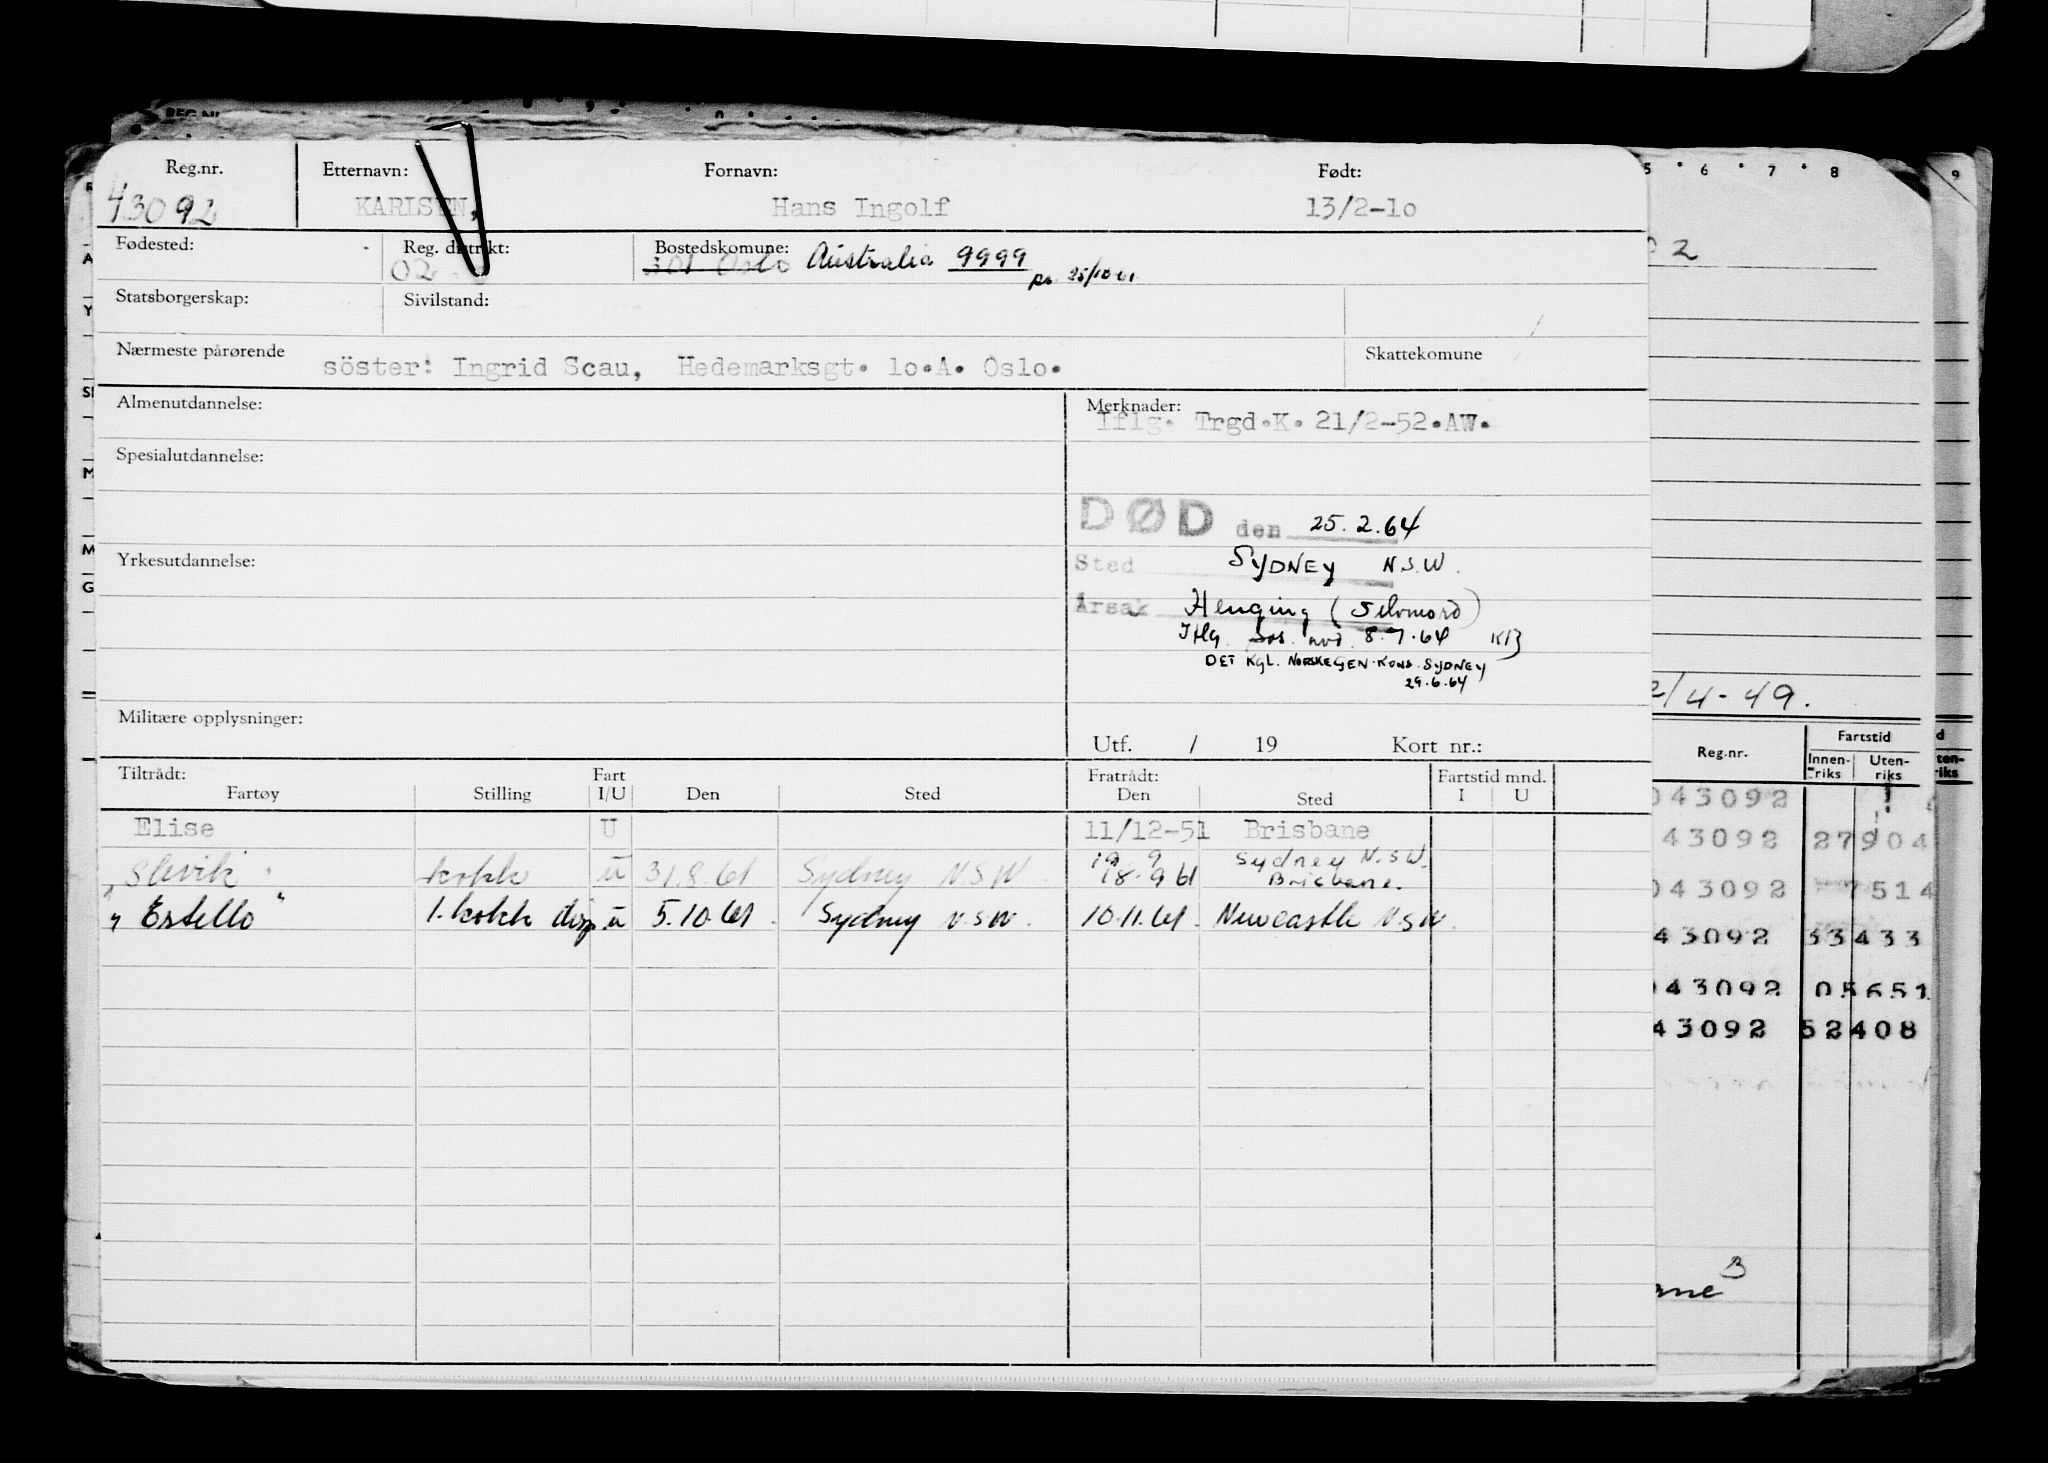 Reg.nr. Etternavn: Fornavn: Født:
43092 KARLSEN, Hans Ingolf 13/2-10
Fødested: Reg. distrikt: Bostedskomune:
02 301 Oslo Australia 9999
25/10 61
Statsborgerskap: Sivilstand:
Nærmeste pårørende Skattekomune
söster: Ingrid Scau, Hedemarksgt. 10.A. Oslo.
Almenutdannelse: Merknader:
Iflg. Trgd.K. 21/2-52.AW.
Spesialutdannelse:
DØD den 25.2.64
Yrkesutdannelse: Sted SYDNEY N.S.W.
Årsak Henging (Selvmord)
Iflg. 8.7.64
DET KGL. NORSKE GEN. KONS. SYDNEY
29.6.64
Militære opplysninger:
Utf. / 19 Kort nr.:
Tiltrådt: Fart Fratrådt: Fartstid mnd.
Fartøy Stilling I/U Den Sted Den Sted I U
Elise U 11/12-51 Brisbane
19 9 Sydney N.S.W.
"Slevik" kokk u 31.8.61 Sydney N.S.W. 18.9 61 Brisbane.
"Estello" 1. kokk u 5.10.61. Sydney N.S.W. 10.11.61. Newcastle N.S.W.
5 6 7 8 9
02
2/4-49.
Reg.nr. Fartstid
Innen-riks Uten-riks
043092
43092 27904
043092 7514
43092 33433
043092 05651
43092 52408